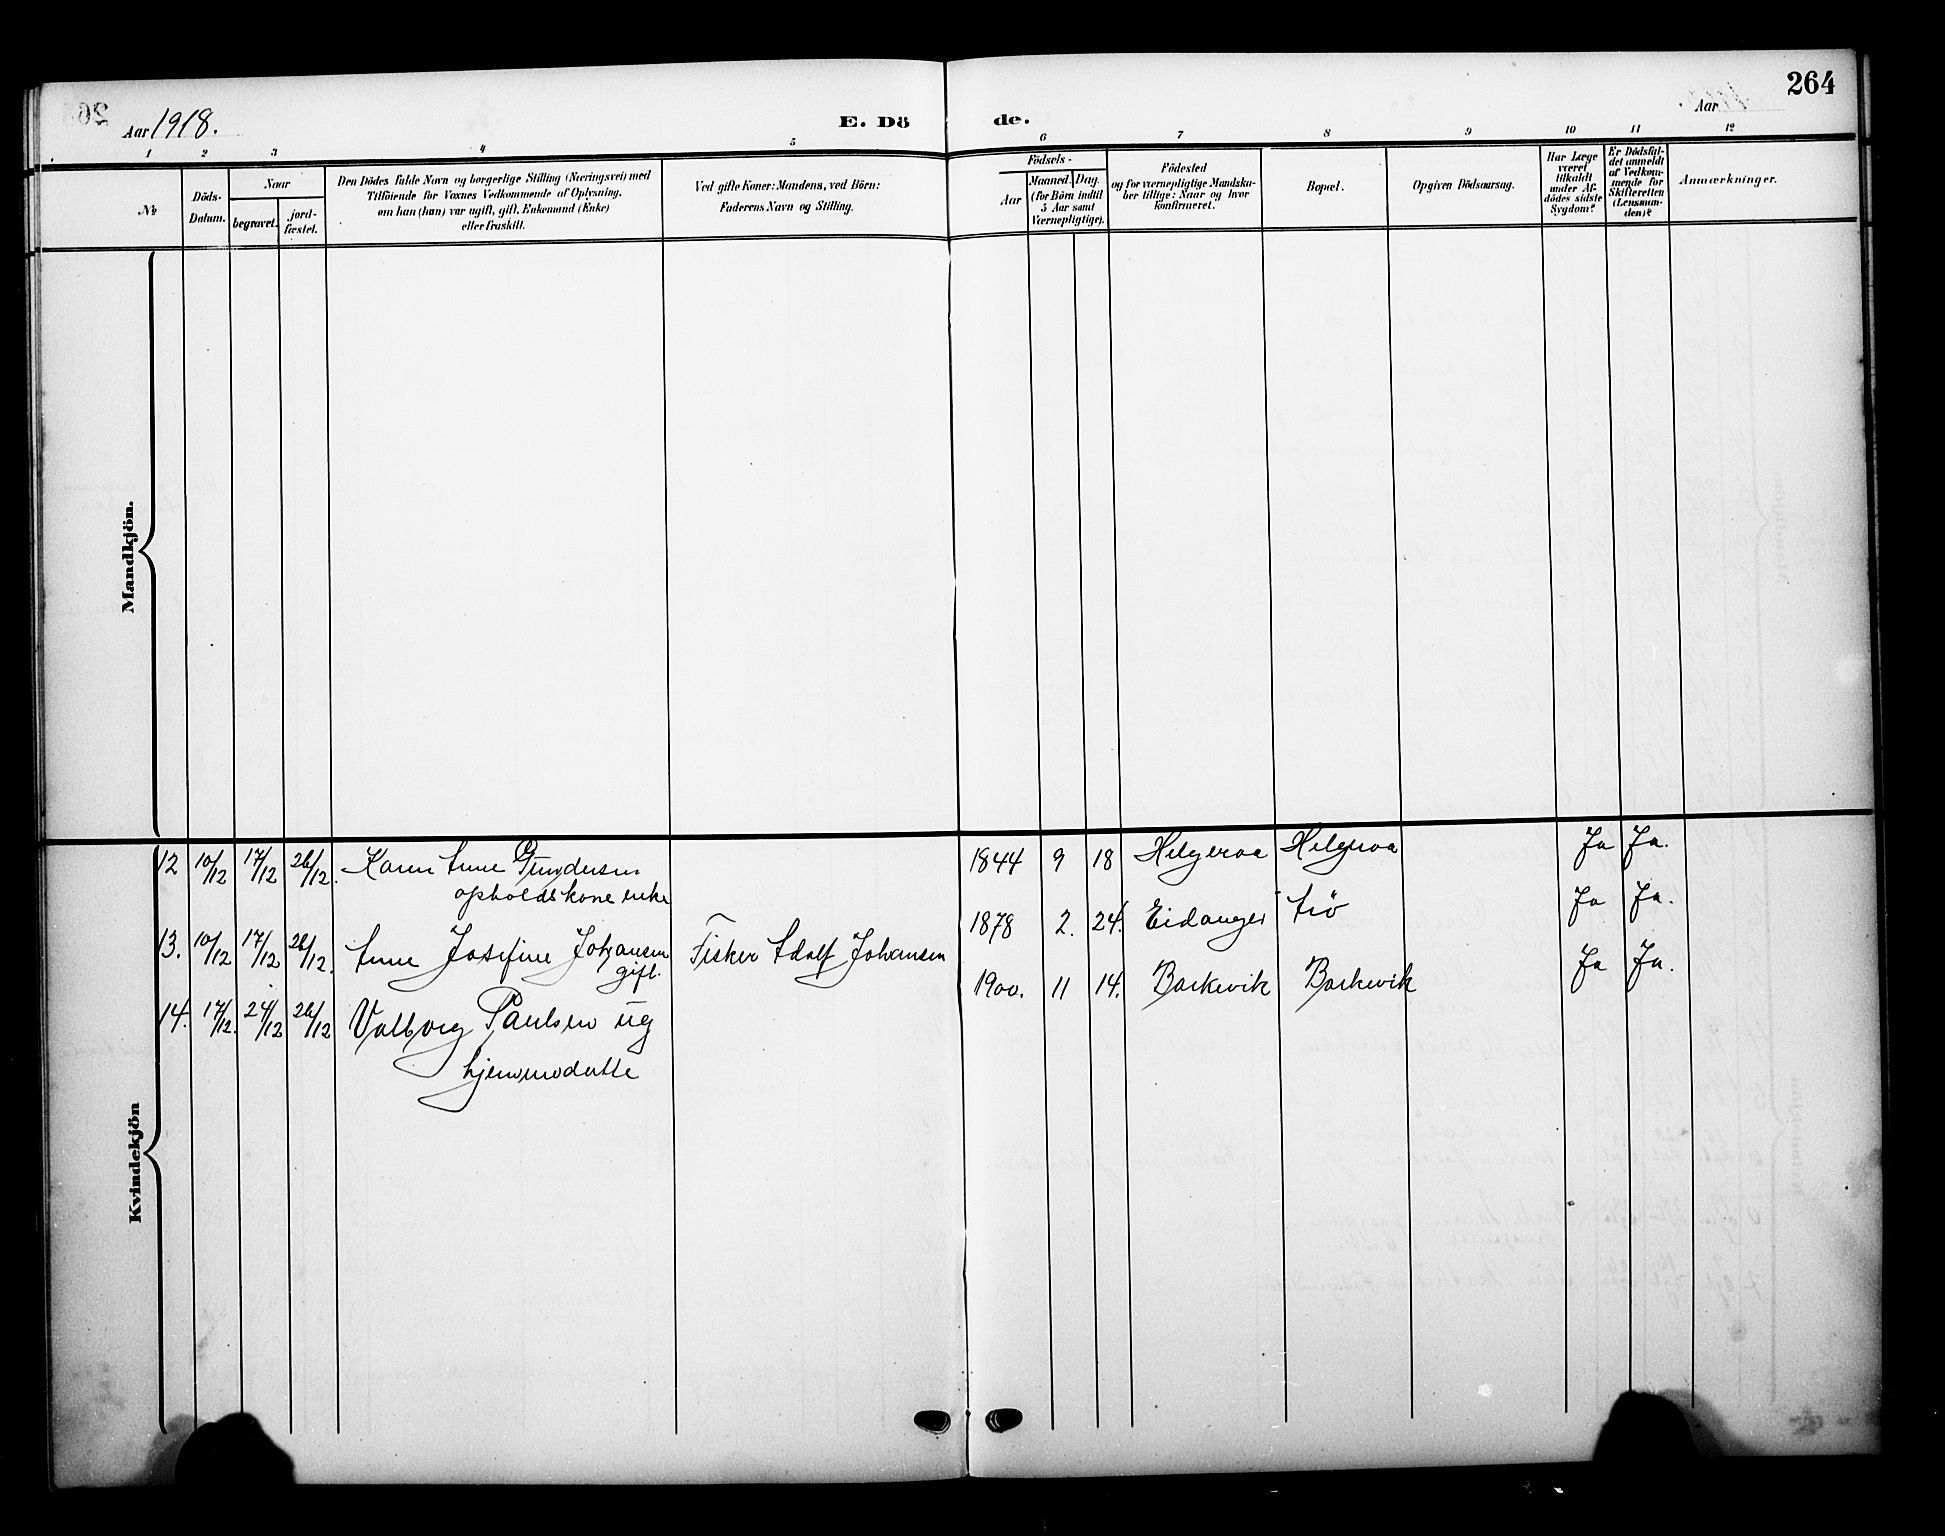 Aar 1918.
E. Dö
de.
Aar
264
1 2 3 4 5 6 7 8 9 10 11 12
Nr
Döds-
Datum.
Naar
begravet.
jord-
fæstet.
Den Dödes fulde Navn og borgerlige Stilling (Næringsvei) med
Tilföiende for Voxnes Vedkommende af Oplysning,
om han (hun) var ugift, gift, Enkemand (Enke)
eller fraskilt.
Ved gifte Koner: Mandens, ved Börn:
Faderens Navn og Stilling.
Födsels-
Aar
Maaned. Dag.
(for Börn indtil
5 Aar samt
Værnepligtige).
Födested
og for værnepligtige Mandska-
ber tillige: Naar og hvor
konfirmeret.
Bopæl.
Opgiven Dödsaarsag.
Har Læge
været
tilkaldt
under Af-
dödes sidste
Sygdom?
Er Dödsfal-
det anmeldt
af Vedkom-
mende for
Skifteretten
(Lensman-
den)?
Anmærkninger.
Mandkjön.
Kvindekjön
12 10/12 17/12 26/12. Karen Anne Gundersen 1844 9 18 Helgeroa Helgeroa Ja Ja.
opholdskone enke
13. 10/12 17/12 26/12. Anne Josefine Johansen Fisker Adolf Johansen 1878 2. 24. Eidanger Ja Ja.
gift.
14. 17/12. 24/12 26/12 Valborg Paulsen ug 1900. 11 14. Barkevik Barkevik Ja Ja.
hjemmedatte